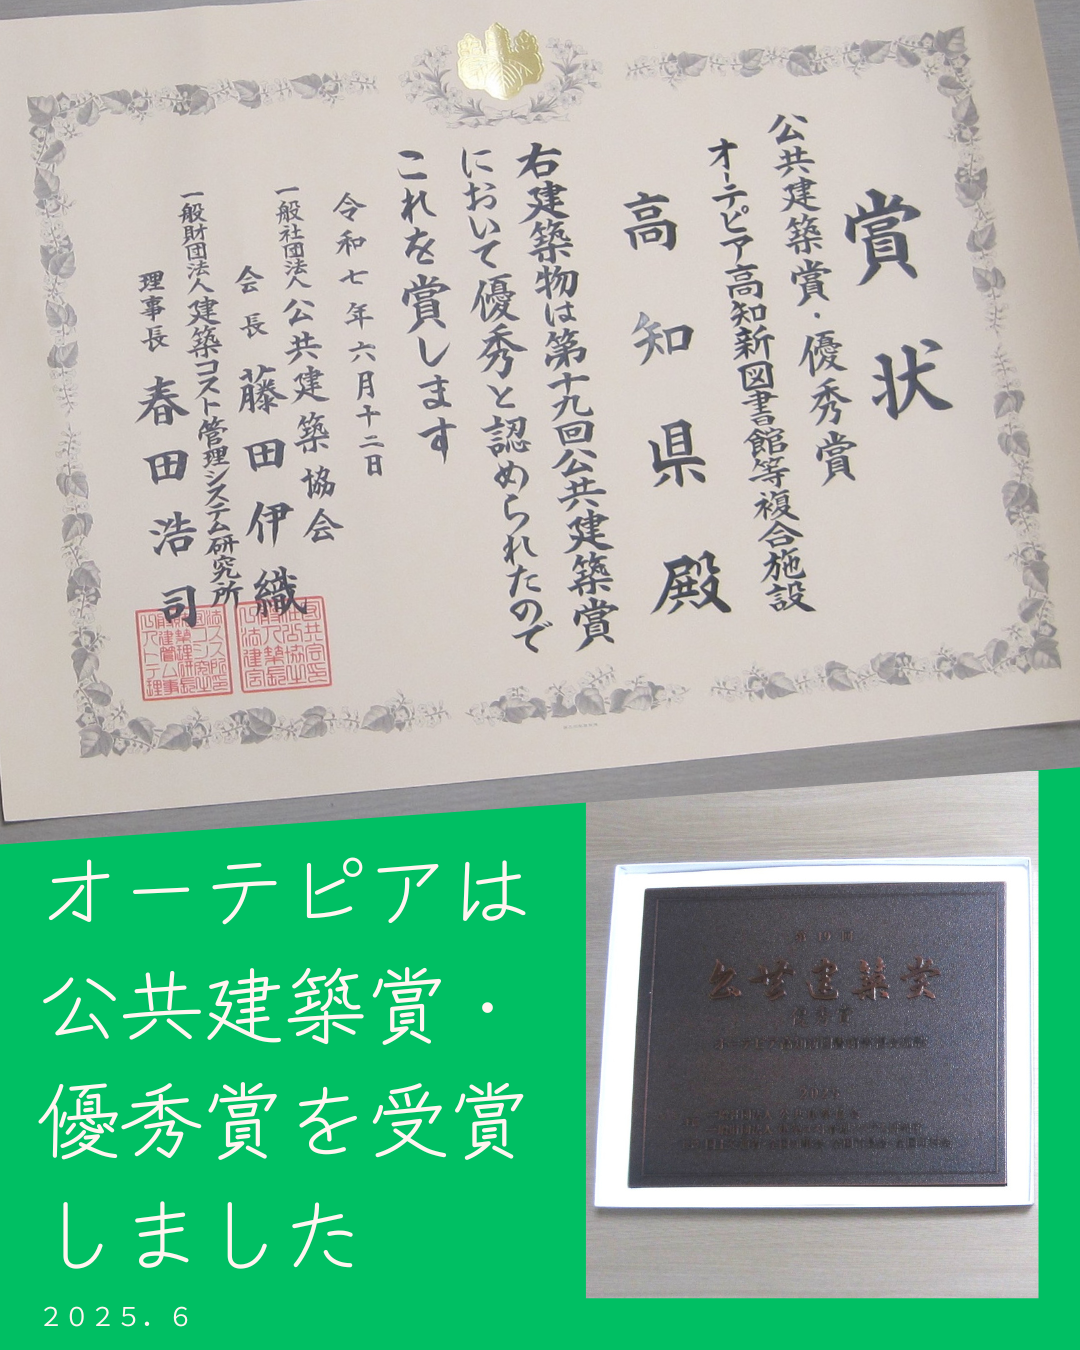 賞状
公共建築賞・優秀賞
オーテピア高知新図書館等複合施設
高知県殿
右建築物は第十九回公共建築賞
において優秀と認められたので
これを賞します
令和七年六月十二日
一般社団法人公共建築協会
会長藤田伊織
一般財団法人建築コスト管理システム研究所
理事長春田浩司
オーテピアは
公共建築賞・
優秀賞を受賞
しました
2025. 6
第19回
公共建築賞
優秀賞